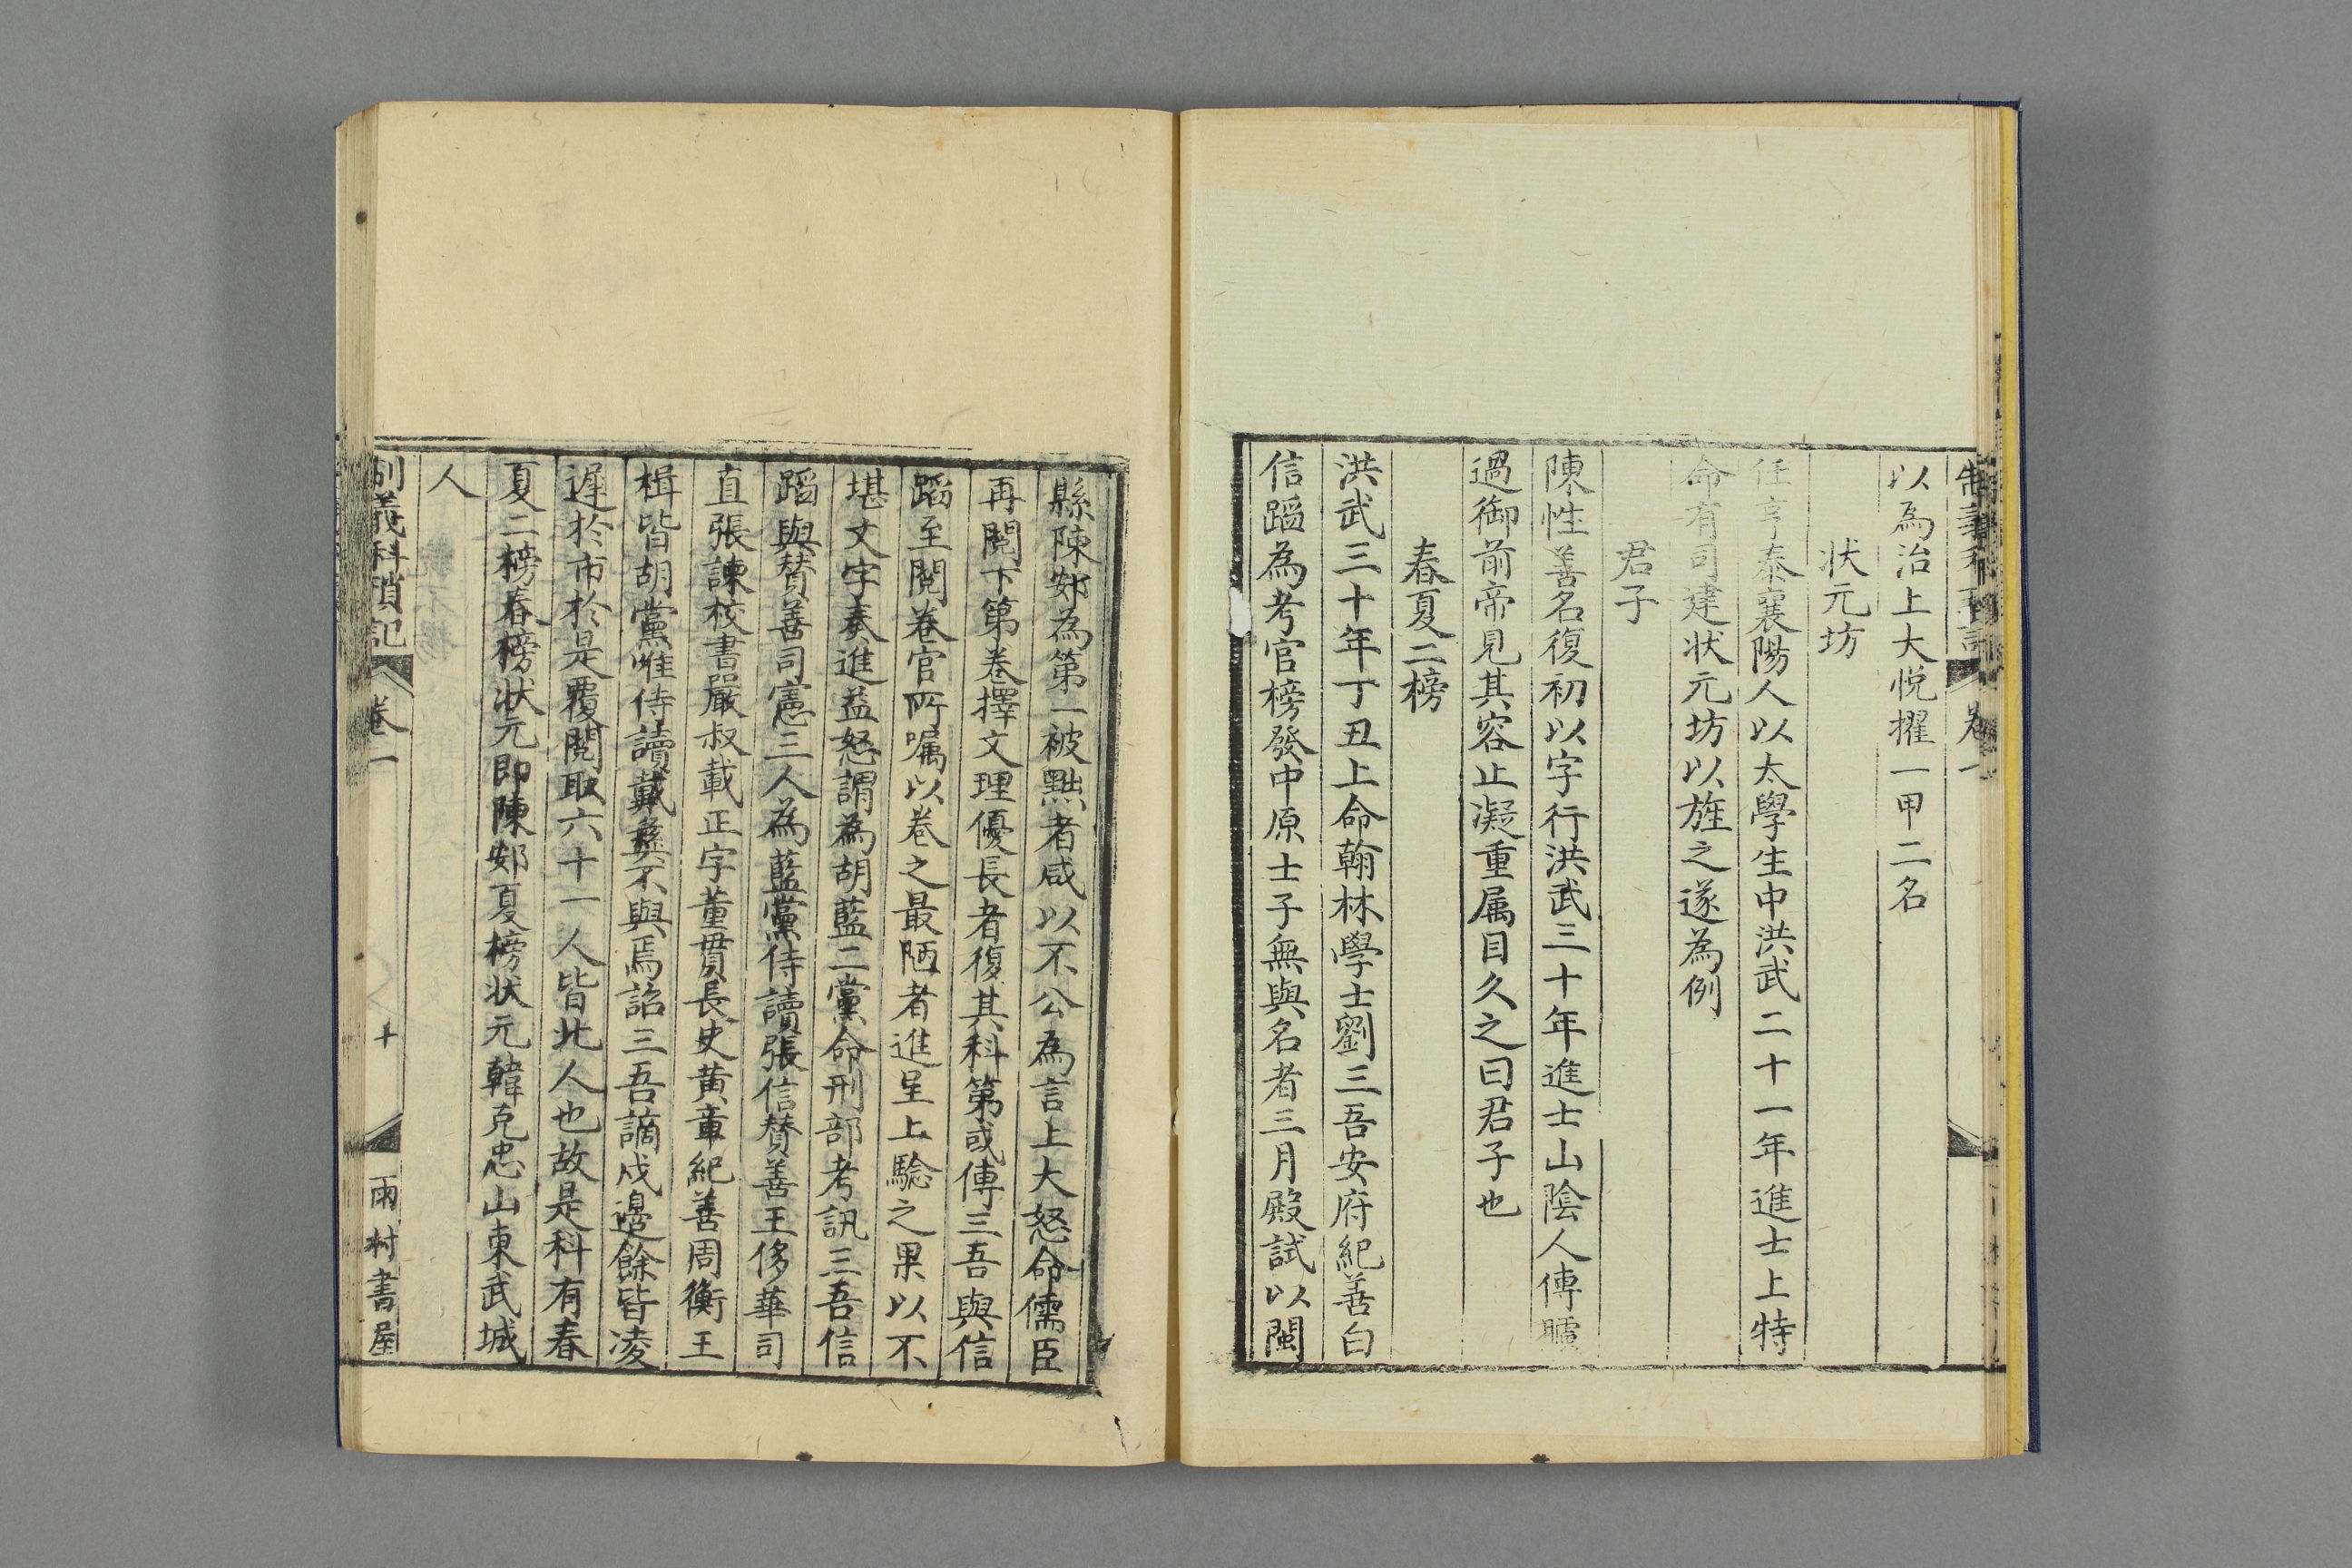 制義科瑣記
卷一
以為治上大悅擢一甲二名
状元坊
任亨泰襄陽人以太學生中洪武二十一年進士上特
命有司建状元坊以旌之遂為例
君子
陳性善名復初以字行洪武三十年進士山陰人傳臚
過御前帝見其容止凝重属目久之曰君子也
春夏二榜
洪武三十年丁丑上命翰林學士劉三吾安府紀善白
信蹈為考官榜發中原士子無與名者三月殿試以閩
縣陳䢿為第一被黜者咸以不公為言上大怒命儒臣
再閱下第卷擇文理優長者復其科第或傳三吾與信
蹈至閱卷官所嘱以卷之最陋者進呈上驗之果以不
堪文字奏進益怒謂為胡藍二黨命刑部考訊三吾信
蹈與贊善司憲三人為藍黨侍讀張信贊善王侈華司
直張諫校書嚴叔載正字董貫長史黄章紀善周衡王
楫皆胡黨唯侍讀戴彝不與焉詔三吾謫戍邊餘皆凌
遲於市於是覆閱取六十一人皆北人也故是科有春
夏二榜春榜状元即陳䢿夏榜状元韓克忠山東武城
人
制義科瑣記
卷一
十
雨村書屋